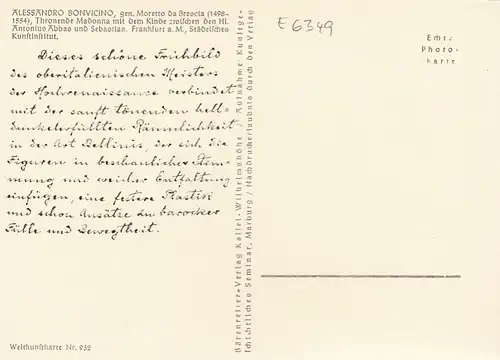 ALESSANDRO BONVICINO, gen. Moretto da Brescia (1498-
1554), Thronende Madonna mit dem Kinde zwischen den Hl.
Antonius Abbas und Sebastian. Frankfurt a. M., Städelsches
Kunstinstitut.
Dieses schöne Frühbild
des oberitalienischen Meisters
der Hochrenaissance verbindet
mit der sanft tönenden hell-
dunkelerfüllten Räumlichkeit
in der Art Bellinis, der sich die
Figuren in beschaulicher Stim-
mung und weicher Entfaltung
einfügen, eine festere Plastik
und schon Ansätze zu barocker
Fülle und Bewegtheit.
Weltkunstkarte Nr. 932
Bärenreiter-Verlag Kassel-Wilhelmshöhe / Aufnahme: Kunstge-
schichtliches Seminar, Marburg / Nachdruckerlaubnis durch den Verlag
E 6349
Echte
Photo-
karte